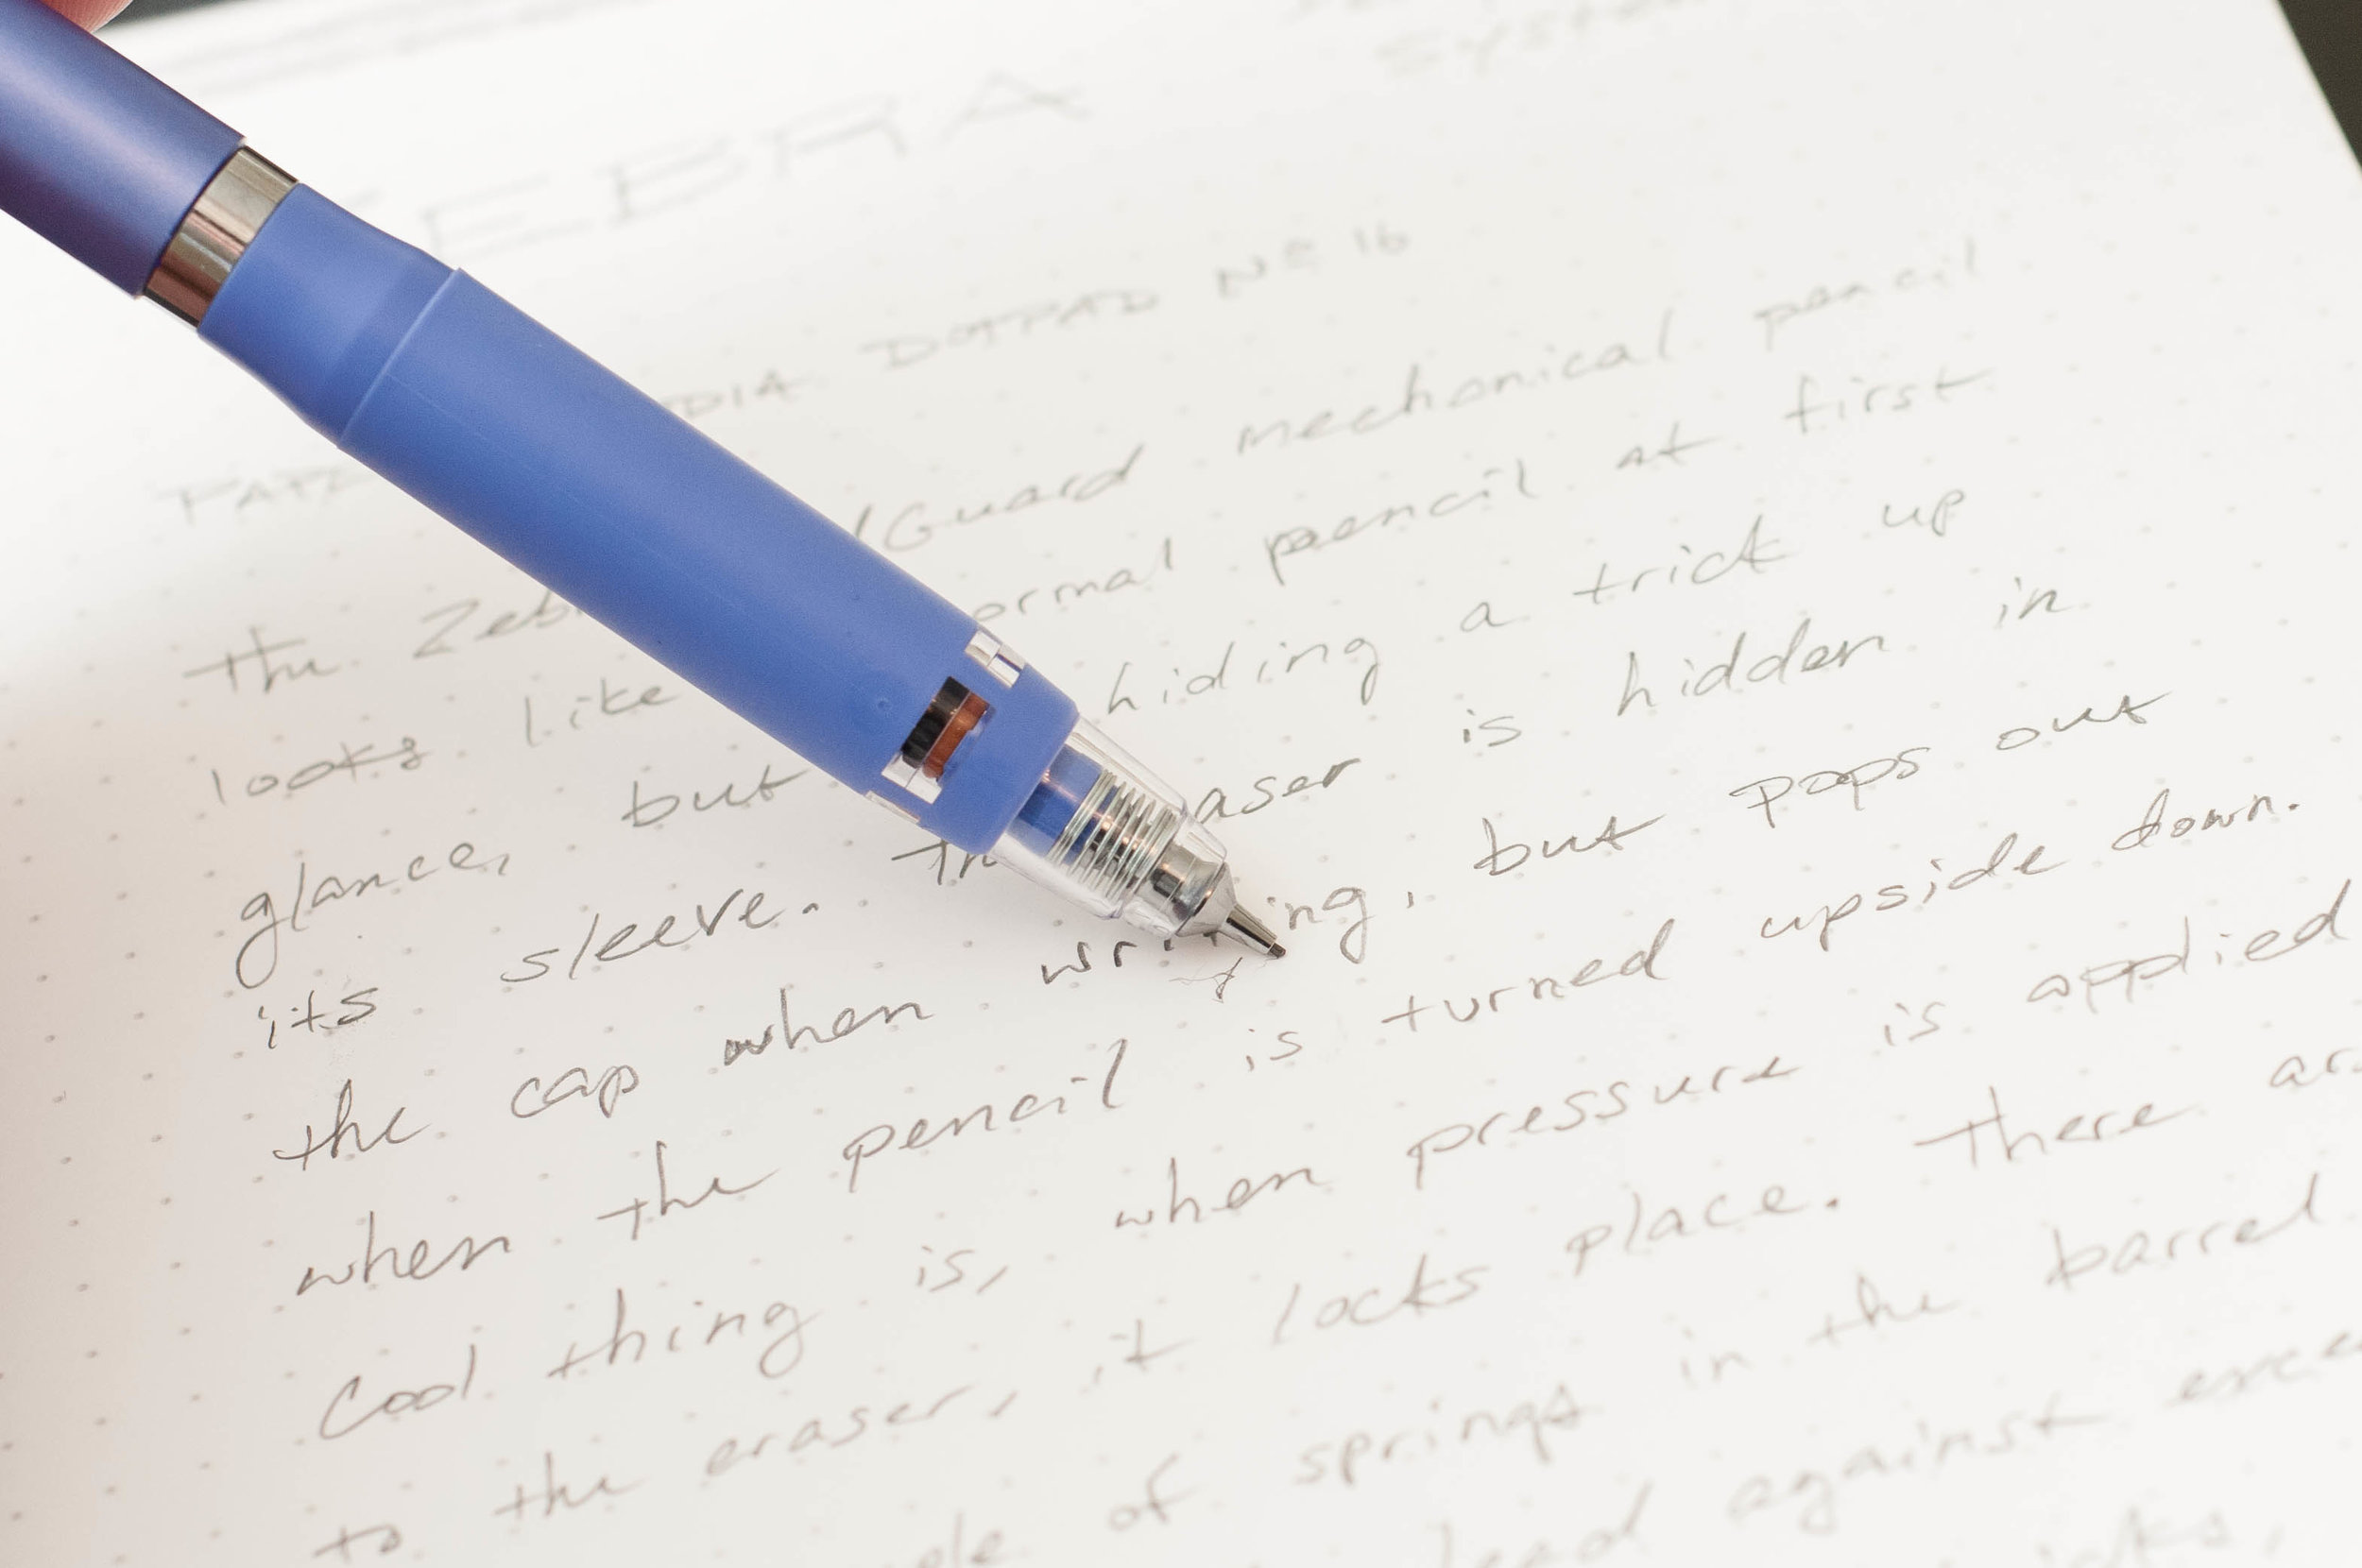 System
EBRA
DIA DOTPAD Nº 16
The Zeb lGuard mechanical pencil
looks like ormal pencil at first
glance, but hiding a trick up
its sleeve. Th aser is hidden in
the cap when writing, but pops out
when the pencil is turned upside down.
Cool thing is, when pressure is applied
to the eraser, it locks place. There ar
ple of springs in the barrel
lead against exce